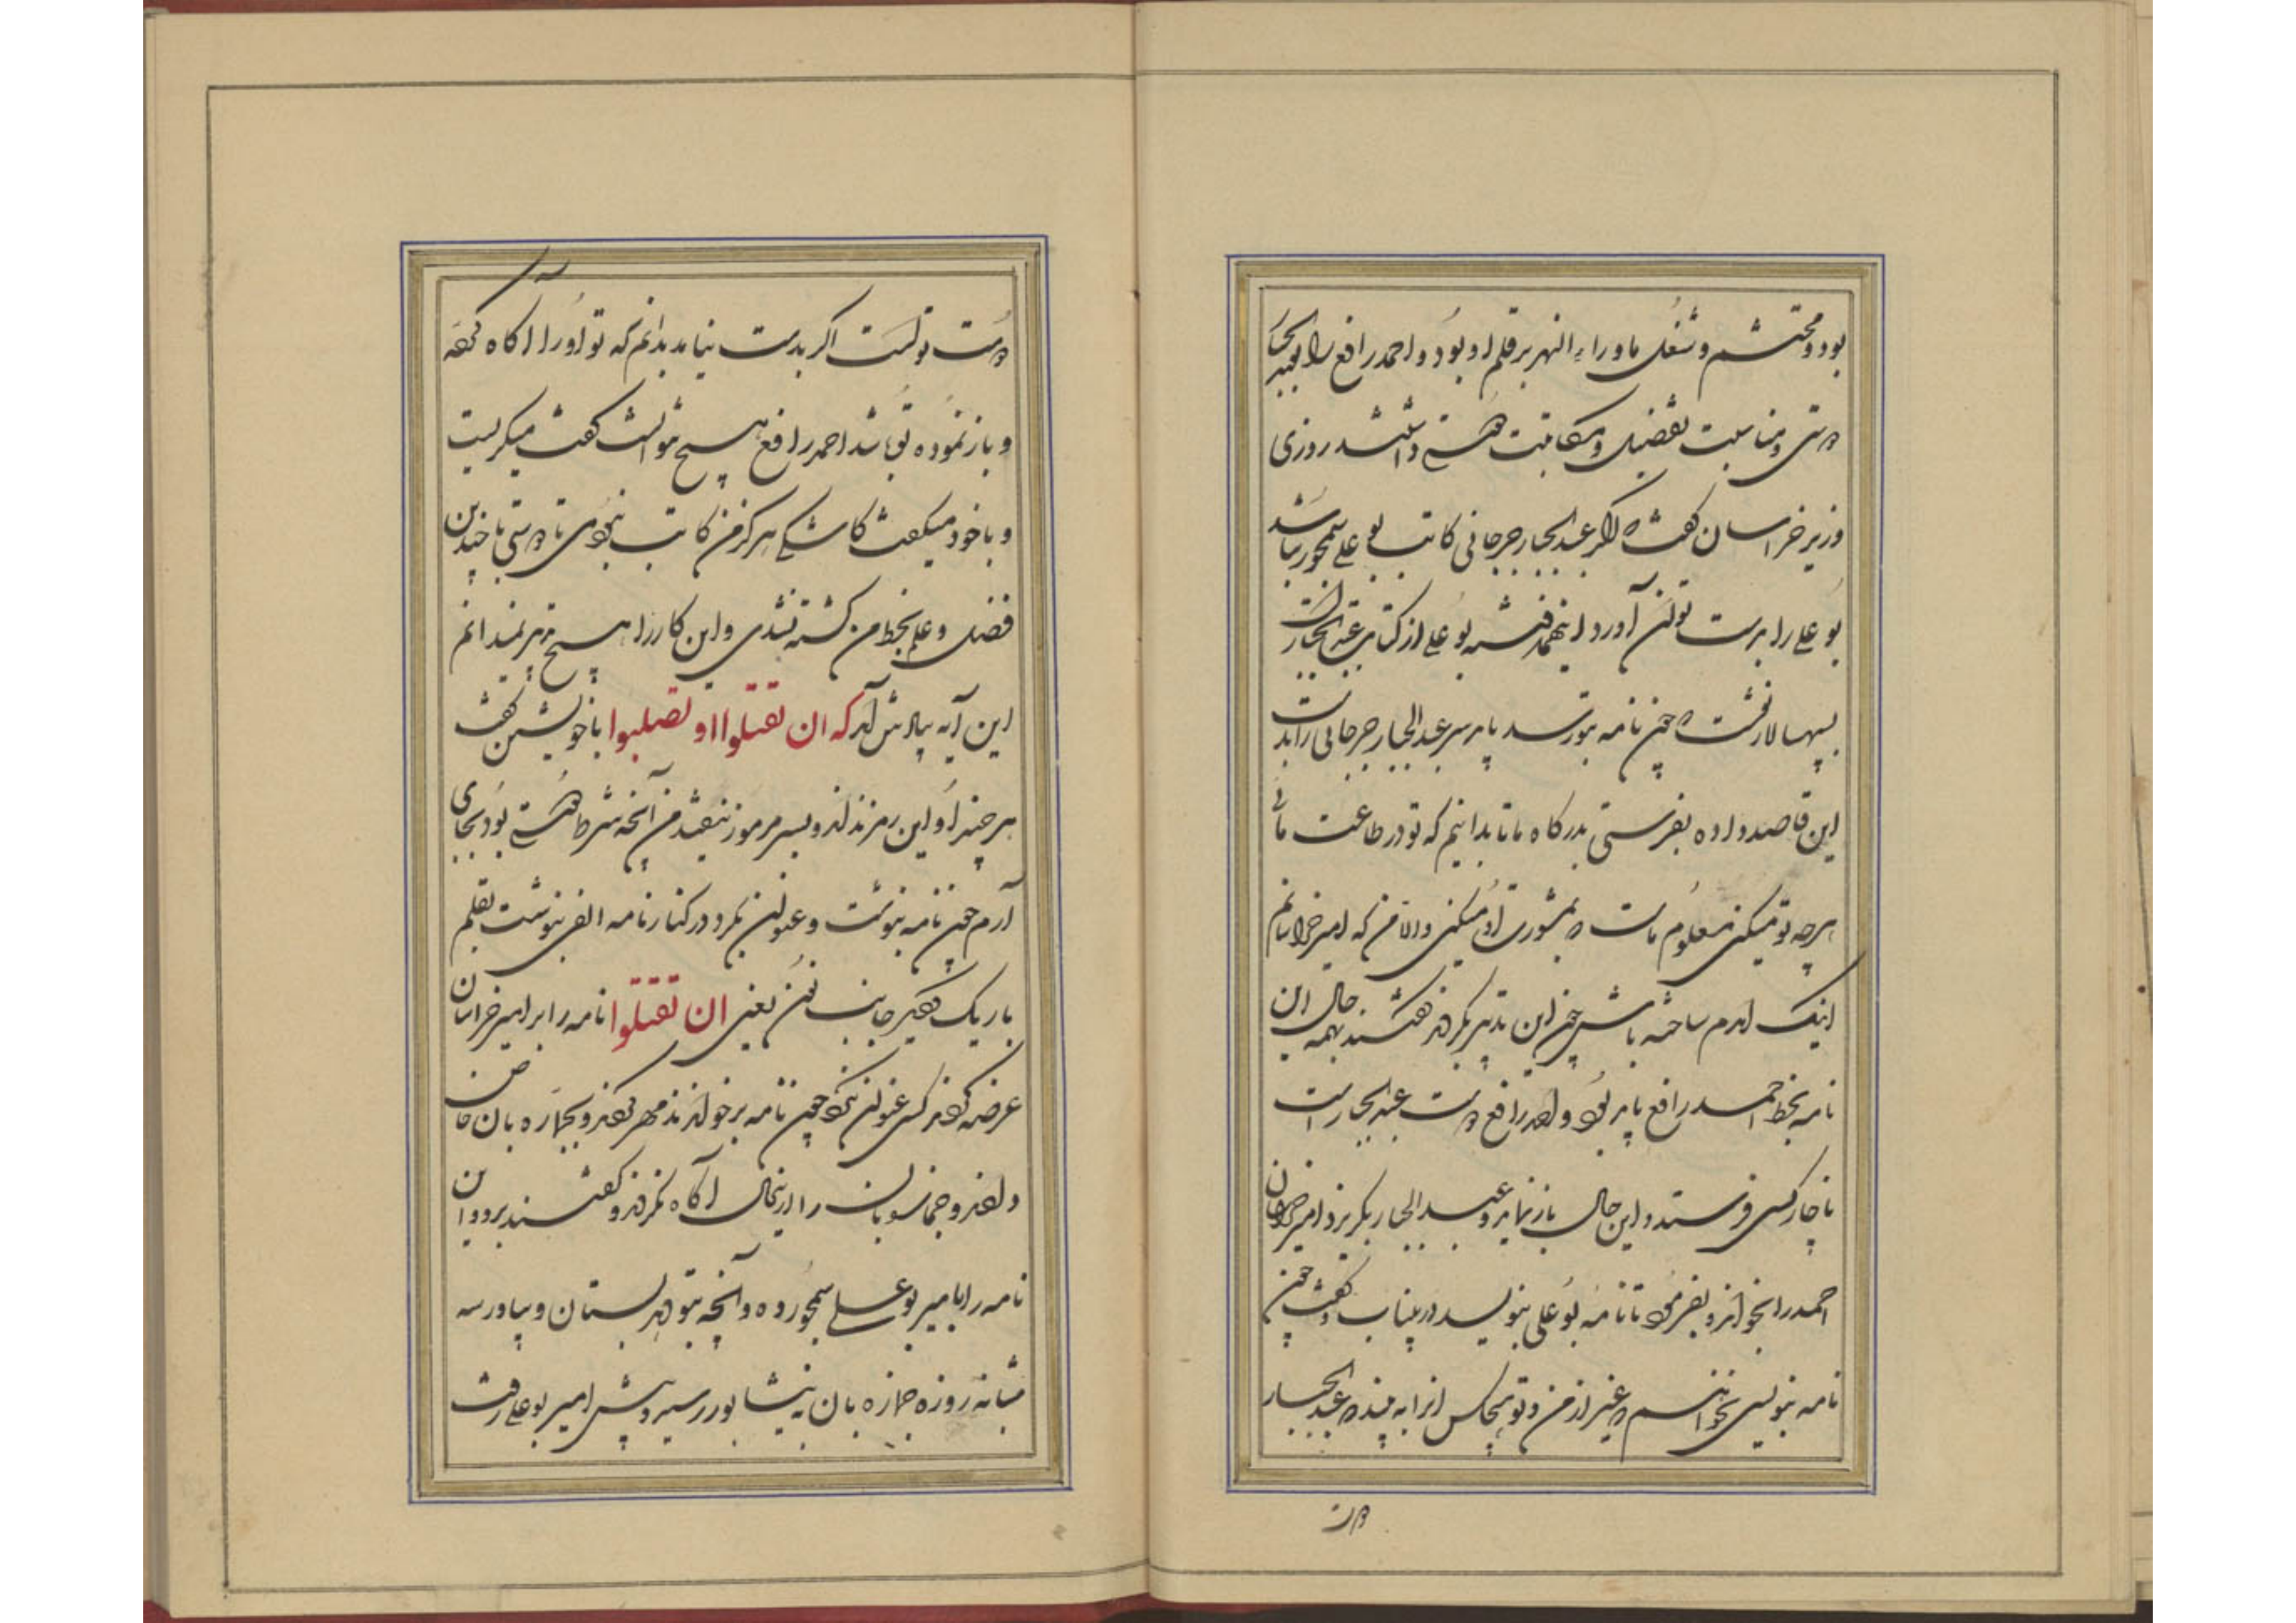 بود و محتشم و شغل ماوراء النهر بر قلم او بود و احمد رافع را با عبدالجبار
دوستی و مناسبت بفضل و مکاتبت داشتند روزی
وزیر خراسان گفت که اگر عبدالجبار جرجانی کاتب بو علی سمجور نباشد
بو علی را بدست توان آورد اینهمه فتنه بو علی از کتابت عبدالجبار است
بسپهسالار نوشت که چون نامه بتو رسد باید سر عبدالجبار جرجانی را بدست
این قاصد داده بفرستی بدرگاه ما تا بدانیم که تو در طاعت مائی
هر چه تو میکنی معلوم ماست که بمشورت او میکنی و الا من که امیر خراسانم
اینک آمدم ساخته باش چون این تدبیر بکردند گفتند بهمه حال این
نامه بخط احمد رافع باید بود و احمد رافع دوست عبدالجبار است
ناچار کسی فرستد و این حال باز نماید و عبدالجبار بگریزد امیر خراسان
احمد را بخواند و بفرمود تا نامه بو علی بنویسد در ینباب و گفت چون
نامه بنویسی نخواهم که غیر از من و تو هیچکس آنرا به بیند که عبدالجبار
دوست
دوست تو است اگر بدست نیاید بدانم که تو او را آگاه کرده
و باز نموده تو باشد احمد رافع هیچ نتوانست گفت میگریست
و با خود میگفت کاشکی هرگز من کاتب نبودمی تا دوستی با چندین
فضل و علم بخط من کشته نشدی و این کار را هیچ تدبیر نمیدانم
این آیه بیادش آمد که ان تقتلوا او تصلبوا با خویشتن گفت
هر چند او این رمز نداند و بسر مرموز نیفتد من آنچه شرط دوستی بود بجای
آرم چون نامه بنوشت و عنوان بکرد در کنار نامه الفی بنوشت بقلم
باریک و دیگر جانب نون یعنی ان تقتلوا نامه را بر امیر خراسان
عرضه کردند کس عنوان نگه نکرد چون نامه برخواندند مهر کردند و بجمازه بان خاص
دادند و جمازه بان را ازینحال آگاه نکردند و گفتند برو و این
نامه را بامیر بو علی سمجور ده و آنچه بتو دهد بستان و بیاور سه
شبانه روزه جمازه بان به نیشابور رسید و پیش امیر بو علی رفت